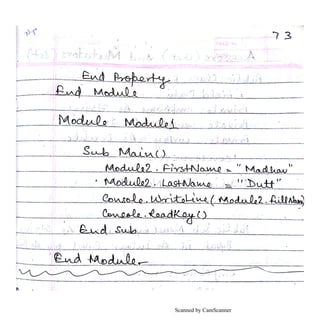 73
End Property
End Module
Module Module1
Sub Main()
Module2.FirstName = "Madhav"
Module2.LastName = "Dutt"
Console.WriteLine(Module2.FullName)
Console.ReadKey()
End Sub
End Module
Scanned by CamScanner